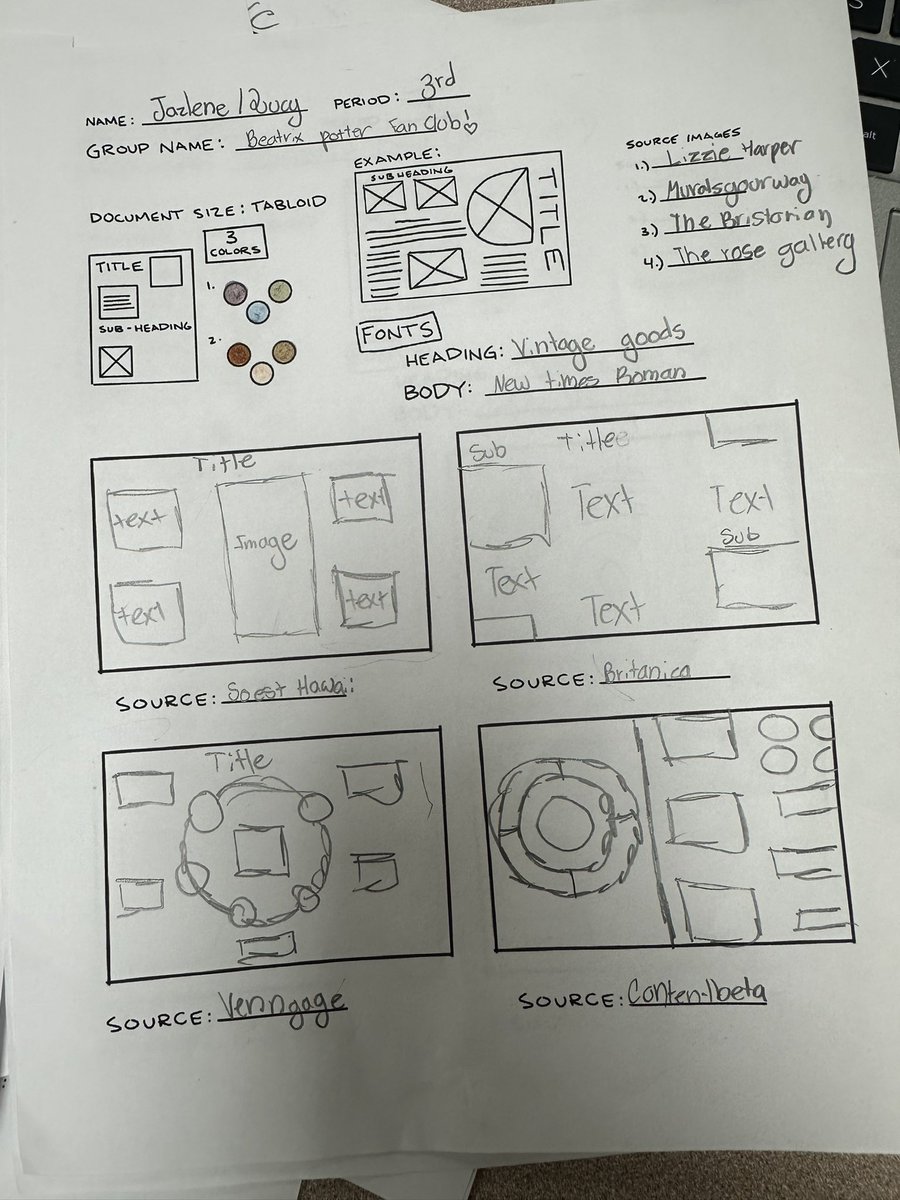 NAME: Jazlene / Lucy PERIOD: 3rd
GROUP NAME: Beatrix potter Fan Club!
SOURCE IMAGES
1.) Lizzie Harper
2.) Muralsyourway
3.) The Bristorian
4.) The rose gallery
DOCUMENT SIZE: TABLOID
TITLE
SUB-HEADING
3
COLORS
1.
2.
EXAMPLE:
SUB HEADING
TITLE
FONTS
HEADING: Vintage goods
BODY: New times Roman
Title
text
text
Image
text
text
SOURCE: Soest Hawaii
Sub
titlee
Text
Text
Sub
Text
Text
SOURCE: Britanica
Title
SOURCE: Venngage
SOURCE: Conten-lbeta